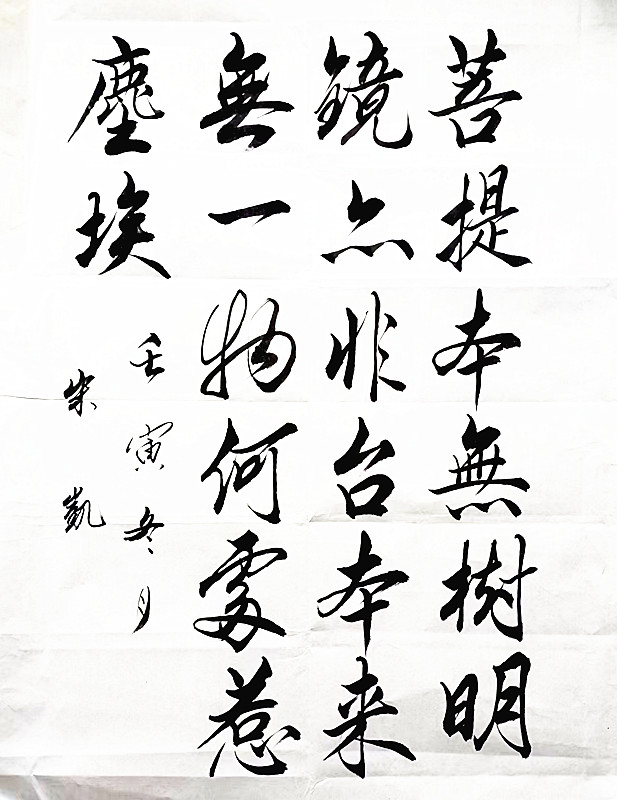 菩提本無樹明
鏡亦非台本来
無一物何處惹
塵埃
壬寅冬月
朱凱